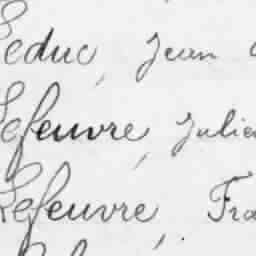 Leduc, Jean
Lefeuvre, Julie
Lefeuvre, Fra